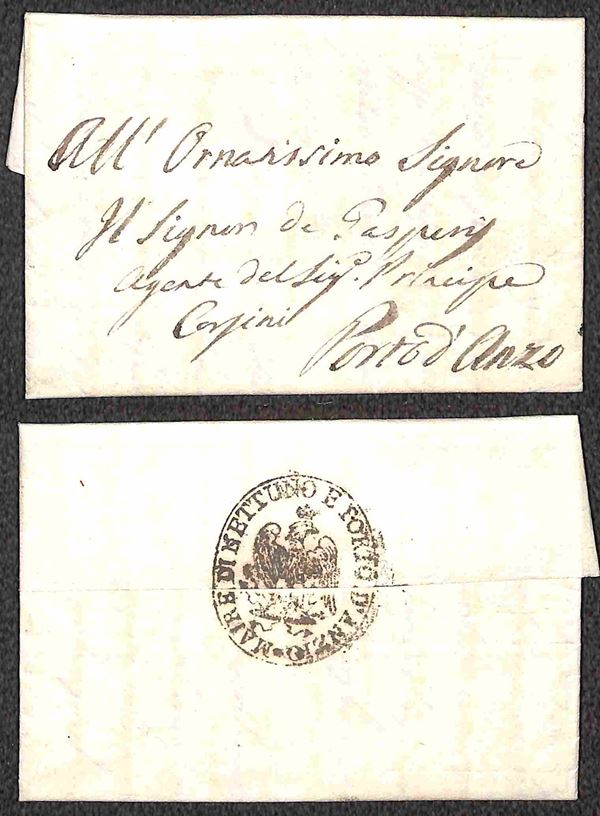 All' Ornatissimo Signore
Il Signor de Gasperis
Agente del Sigr. Principe
Corsini
Porto d'Anzo
MAIRE DI NETTUNO E PORTO D'ANZIO